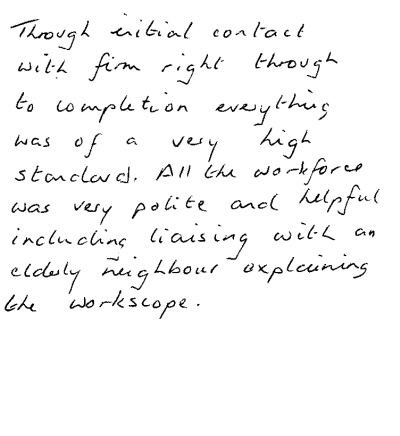 Through initial contact
with firm right through
to completion everything
was of a very high
standard. All the workforce
was very polite and helpful
including liaising with an
elderly neighbour explaining
the workscope.